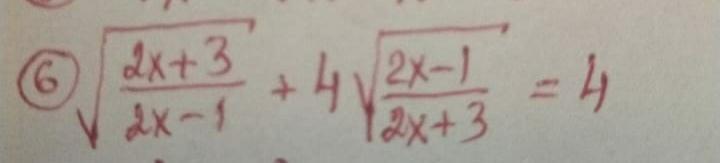 ⑥ √((2x+3)/(2x-1)) + 4√((2x-1)/(2x+3)) = 4